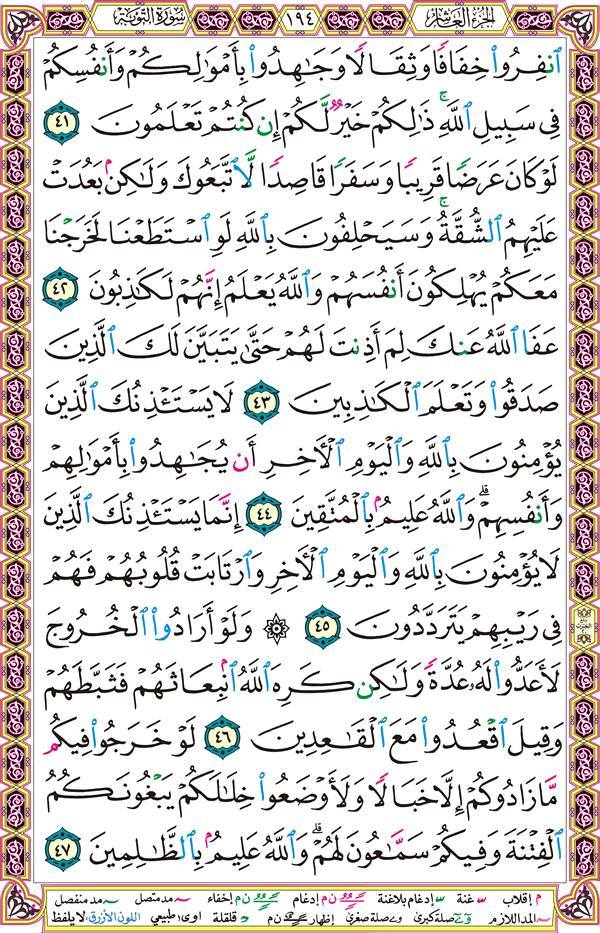 سُورَةُ التَّوْبَةِ ١٩٤ الجُزْءُ العَاشِرُ
ٱنفِرُواْ خِفَافٗا وَثِقَالٗا وَجَٰهِدُواْ بِأَمۡوَٰلِكُمۡ وَأَنفُسِكُمۡ
فِي سَبِيلِ ٱللَّهِۚ ذَٰلِكُمۡ خَيۡرٞ لَّكُمۡ إِن كُنتُمۡ تَعۡلَمُونَ ٤١
لَوۡ كَانَ عَرَضٗا قَرِيبٗا وَسَفَرٗا قَاصِدٗا لَّٱتَّبَعُوكَ وَلَٰكِنۢ بَعُدَتۡ
عَلَيۡهِمُ ٱلشُّقَّةُۚ وَسَيَحۡلِفُونَ بِٱللَّهِ لَوِ ٱسۡتَطَعۡنَا لَخَرَجۡنَا
مَعَكُمۡ يُهۡلِكُونَ أَنفُسَهُمۡ وَٱللَّهُ يَعۡلَمُ إِنَّهُمۡ لَكَٰذِبُونَ ٤٢
عَفَا ٱللَّهُ عَنكَ لِمَ أَذِنتَ لَهُمۡ حَتَّىٰ يَتَبَيَّنَ لَكَ ٱلَّذِينَ
صَدَقُواْ وَتَعۡلَمَ ٱلۡكَٰذِبِينَ ٤٣ لَا يَسۡتَـٔۡذِنُكَ ٱلَّذِينَ
يُؤۡمِنُونَ بِٱللَّهِ وَٱلۡيَوۡمِ ٱلۡأٓخِرِ أَن يُجَٰهِدُواْ بِأَمۡوَٰلِهِمۡ
وَأَنفُسِهِمۡۗ وَٱللَّهُ عَلِيمُۢ بِٱلۡمُتَّقِينَ ٤٤ إِنَّمَا يَسۡتَـٔۡذِنُكَ ٱلَّذِينَ
لَا يُؤۡمِنُونَ بِٱللَّهِ وَٱلۡيَوۡمِ ٱلۡأٓخِرِ وَٱرۡتَابَتۡ قُلُوبُهُمۡ فَهُمۡ
فِي رَيۡبِهِمۡ يَتَرَدَّدُونَ ٤٥ ۞ وَلَوۡ أَرَادُواْ ٱلۡخُرُوجَ
لَأَعَدُّواْ لَهُۥ عُدَّةٗ وَلَٰكِن كَرِهَ ٱللَّهُ ٱنۢبِعَاثَهُمۡ فَثَبَّطَهُمۡ
وَقِيلَ ٱقۡعُدُواْ مَعَ ٱلۡقَٰعِدِينَ ٤٦ لَوۡ خَرَجُواْ فِيكُم
مَّا زَادُوكُمۡ إِلَّا خَبَالٗا وَلَأَوۡضَعُواْ خِلَٰلَكُمۡ يَبۡغُونَكُمُ
ٱلۡفِتۡنَةَ وَفِيكُمۡ سَمَّٰعُونَ لَهُمۡۗ وَٱللَّهُ عَلِيمُۢ بِٱلظَّٰلِمِينَ ٤٧
م إقلاب غنة إدغام بلاغنة ن م إدغام ن م إخفاء مد متصل مد منفصل
المد اللازم صلة كبرى صلة صغرى إظهار ن م قلقلة اوى طبيعي اللون الأزرق: لا يلفظ